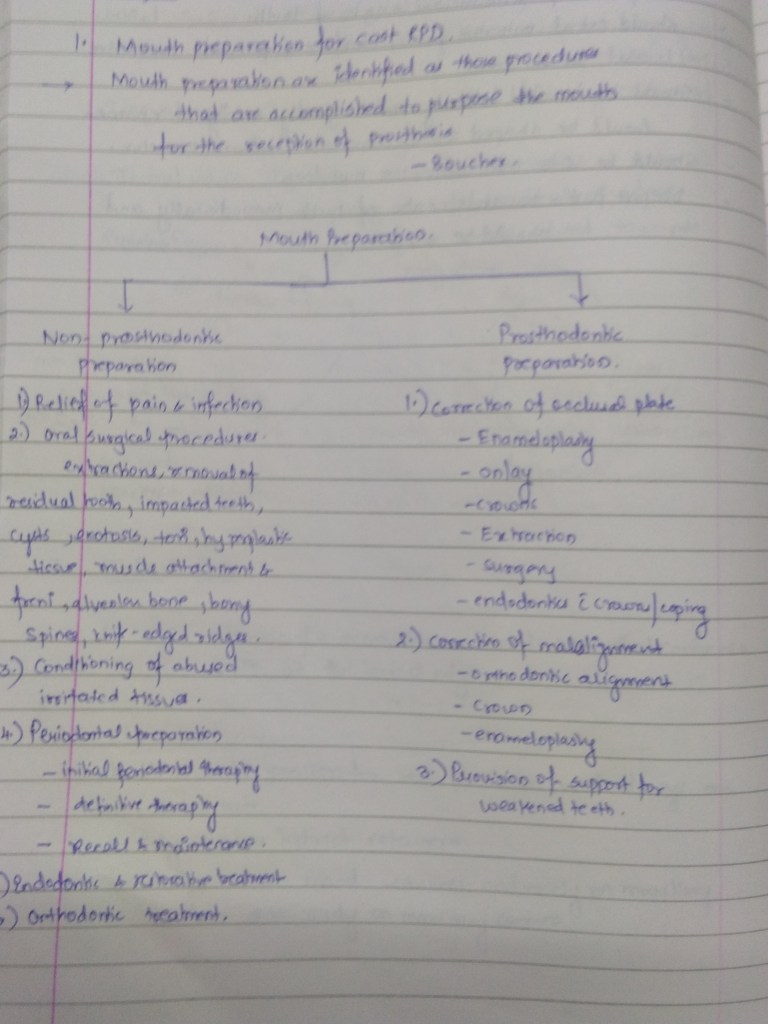 1. Mouth preparation for cast RPD.
→ Mouth preparation are identified as those procedures
that are accomplished to purpose the mouth
for the reception of prosthesis
- Boucher.
Mouth Preparation.
Non-prosthodontic
preparation
1) Relief of pain & infection
2.) Oral surgical procedures.
extractions, removal of
residual tooth, impacted teeth,
cysts, exotosis, tori, hyperplastic
tissue, muscle attachment &
freni, alveolar bone, bony
spines, knife-edged ridges.
3.) Conditioning of abused
irritated tissues.
4.) Periodontal preparation
- initial periodontal therapy
- definitive therapy
- Recall & maintenance.
) Endodontic & restorative treatment
.) Orthodontic treatment.
Prosthodontic
preparation.
1.) correction of occlusal plate
- Enameloplasty
- onlay
- crowns
- Extraction
- surgery
- endodontics c̄ crown/coping
2.) correction of malalignment
- orthodontic alignment
- crown
- enameloplasty
3.) Provision of support for
weakened teeth.